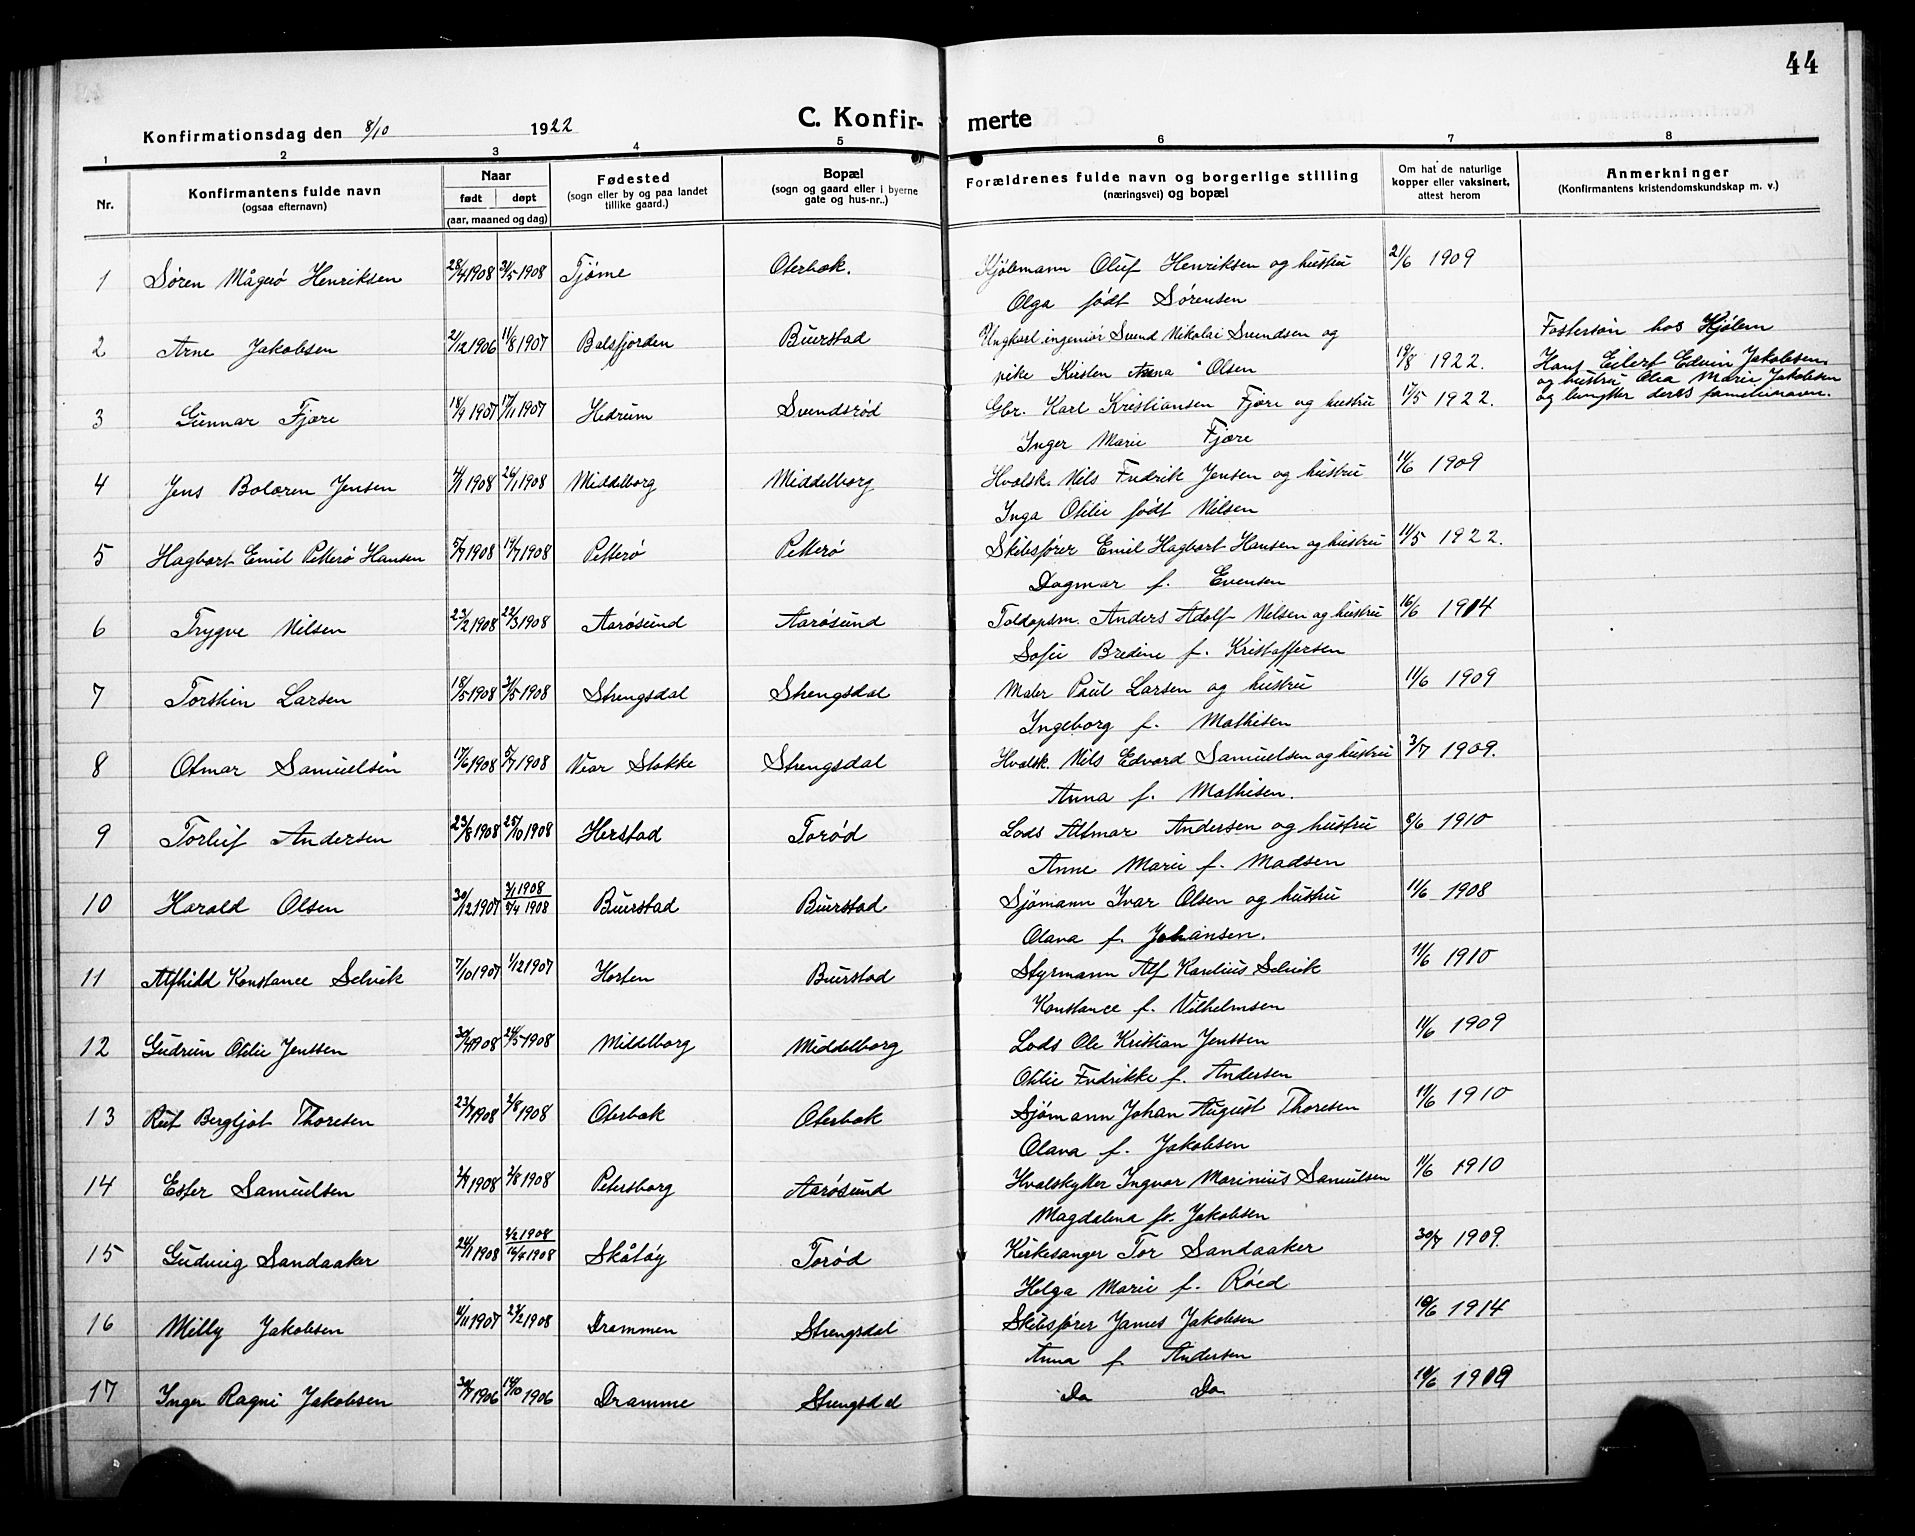 44
Konfirmationsdag den 8/10 1922 C. Konfir- merte
1 2 3 4 5 6 7 8
Nr. Konfirmantens fulde navn (ogsaa efternavn) Naar født døpt (aar, maaned og dag) Fødested (sogn eller by og paa landet tillike gaard.) Bopæl (sogn og gaard eller i byerne gate og hus-nr..) Forældrenes fulde navn og borgerlige stilling (næringsvei) og bopæl Om hat de naturlige kopper eller vaksinert, attest herom Anmerkninger (Konfirmantens kristendomskundskap m. v.)
1 Søren Mågerø Henriksen 28/4 1908 31/5 1908 Tjøme Oterbæk. Kjøbmann Oluf Henriksen og hustru 21/6 1909
Olga født Sørensen
2 Arne Jakobsen 21/12 1906 11/8 1907 Balsfjorden Buerstad Ungkarl ingeniør Svend Nikolai Svendsen og Fostersøn hos Kjøbm
pike Kirsten Anna Olsen 19/8 1922. Hans Eilert Edvin Jakobsen
og hustru Olea Marie Jakobsen
3 Gunnar Fjære 18/9 1907 17/11 1907 Hedrum Svendsrød Gbr. Karl Kristiansen Fjære og hustru 17/5 1922. og benytter deres familienavn.
Inger Marie Fjære
4 Jens Bolæren Jensen 4/1 1908 26/1 1908 Middelborg Middelborg Hvalsk. Nils Fredrik Jensen og hustru 11/6 1909
Inga Otilie født Nilsen
5 Hagbart Emil Petterø Hansen 5/7 1908 19/7 1908 Petterø Petterø Skibsfører Emil Hagbart Hansen og hustru 11/5 1922.
Dagmar f. Evensen
6 Trygve Nilsen 23/2 1908 22/3 1908 Aarøsund Aarøsund Toldopsm. Anders Adolf Nilsen og hustru 16/6 1914
Sofie Bredine f. Kristoffersen
7 Torstein Larsen 18/5 1908 31/5 1908 Strengsdal Strengsdal Maler Paul Larsen og hustru 11/6 1909
Ingeborg f. Mathisen
8 Otmar Samuelsen 17/6 1908 5/7 1908 Vear Stokke Strengsdal Hvalsk. Nils Edvard Samuelsen og hustru 3/7 1909.
Anna f. Mathisen.
9 Torleif Andersen 23/8 1908 25/10 1908 Herstad Torød Lods Altmar Andersen og hustru 8/6 1910
Anne Marie f. Madsen
10 Harald Olsen 30/12 1907 3/1 1908 5/4 1908 Buerstad Buerstad Sjømann Ivar Olsen og hustru 11/6 1908
Olava f. Johansen.
11 Alfhild Konstance Selvik 7/10 1907 1/12 1907 Horten Buerstad Styrmann Alf Karelius Selvik 11/6 1910
Konstance f. Vilhelmsen
12 Gudrun Otilie Jenssen 30/4 1908 24/5 1908 Middelborg Middelborg Lods Ole Kristian Jenssen 11/6 1909
Otilie Fredrikke f. Andersen
13 Rut Bergljot Thoresen 23/7 1908 2/8 1908 Oterbæk Oterbæk Sjømann Johan August Thoresen 11/6 1910
Olava f. Jakobsen
14 Ester Samuelsen 2/7 1908 2/8 1908 Petersborg Aarøsund Hvalskytter Ingvar Marinius Samuelsen 11/6 1910
Magdalena f. Jakobsen
15 Gudveig Sandaaker 24/1 1908 2/2 1908 12/4 1908 Skåtøy Torød Kirkesanger Tor Sandaaker 30/7 1909
Helga Marie f. Røed
16 Milly Jakobsen 11/11 1907 23/2 1908 Drammen Strengsdal Skibsfører James Jakobsen 10/6 1914
Anna f. Andersen
17 Inger Ragni Jakobsen 30/7 1906 14/10 1906 Dramme Strengsdal Do Do 10/6 1909